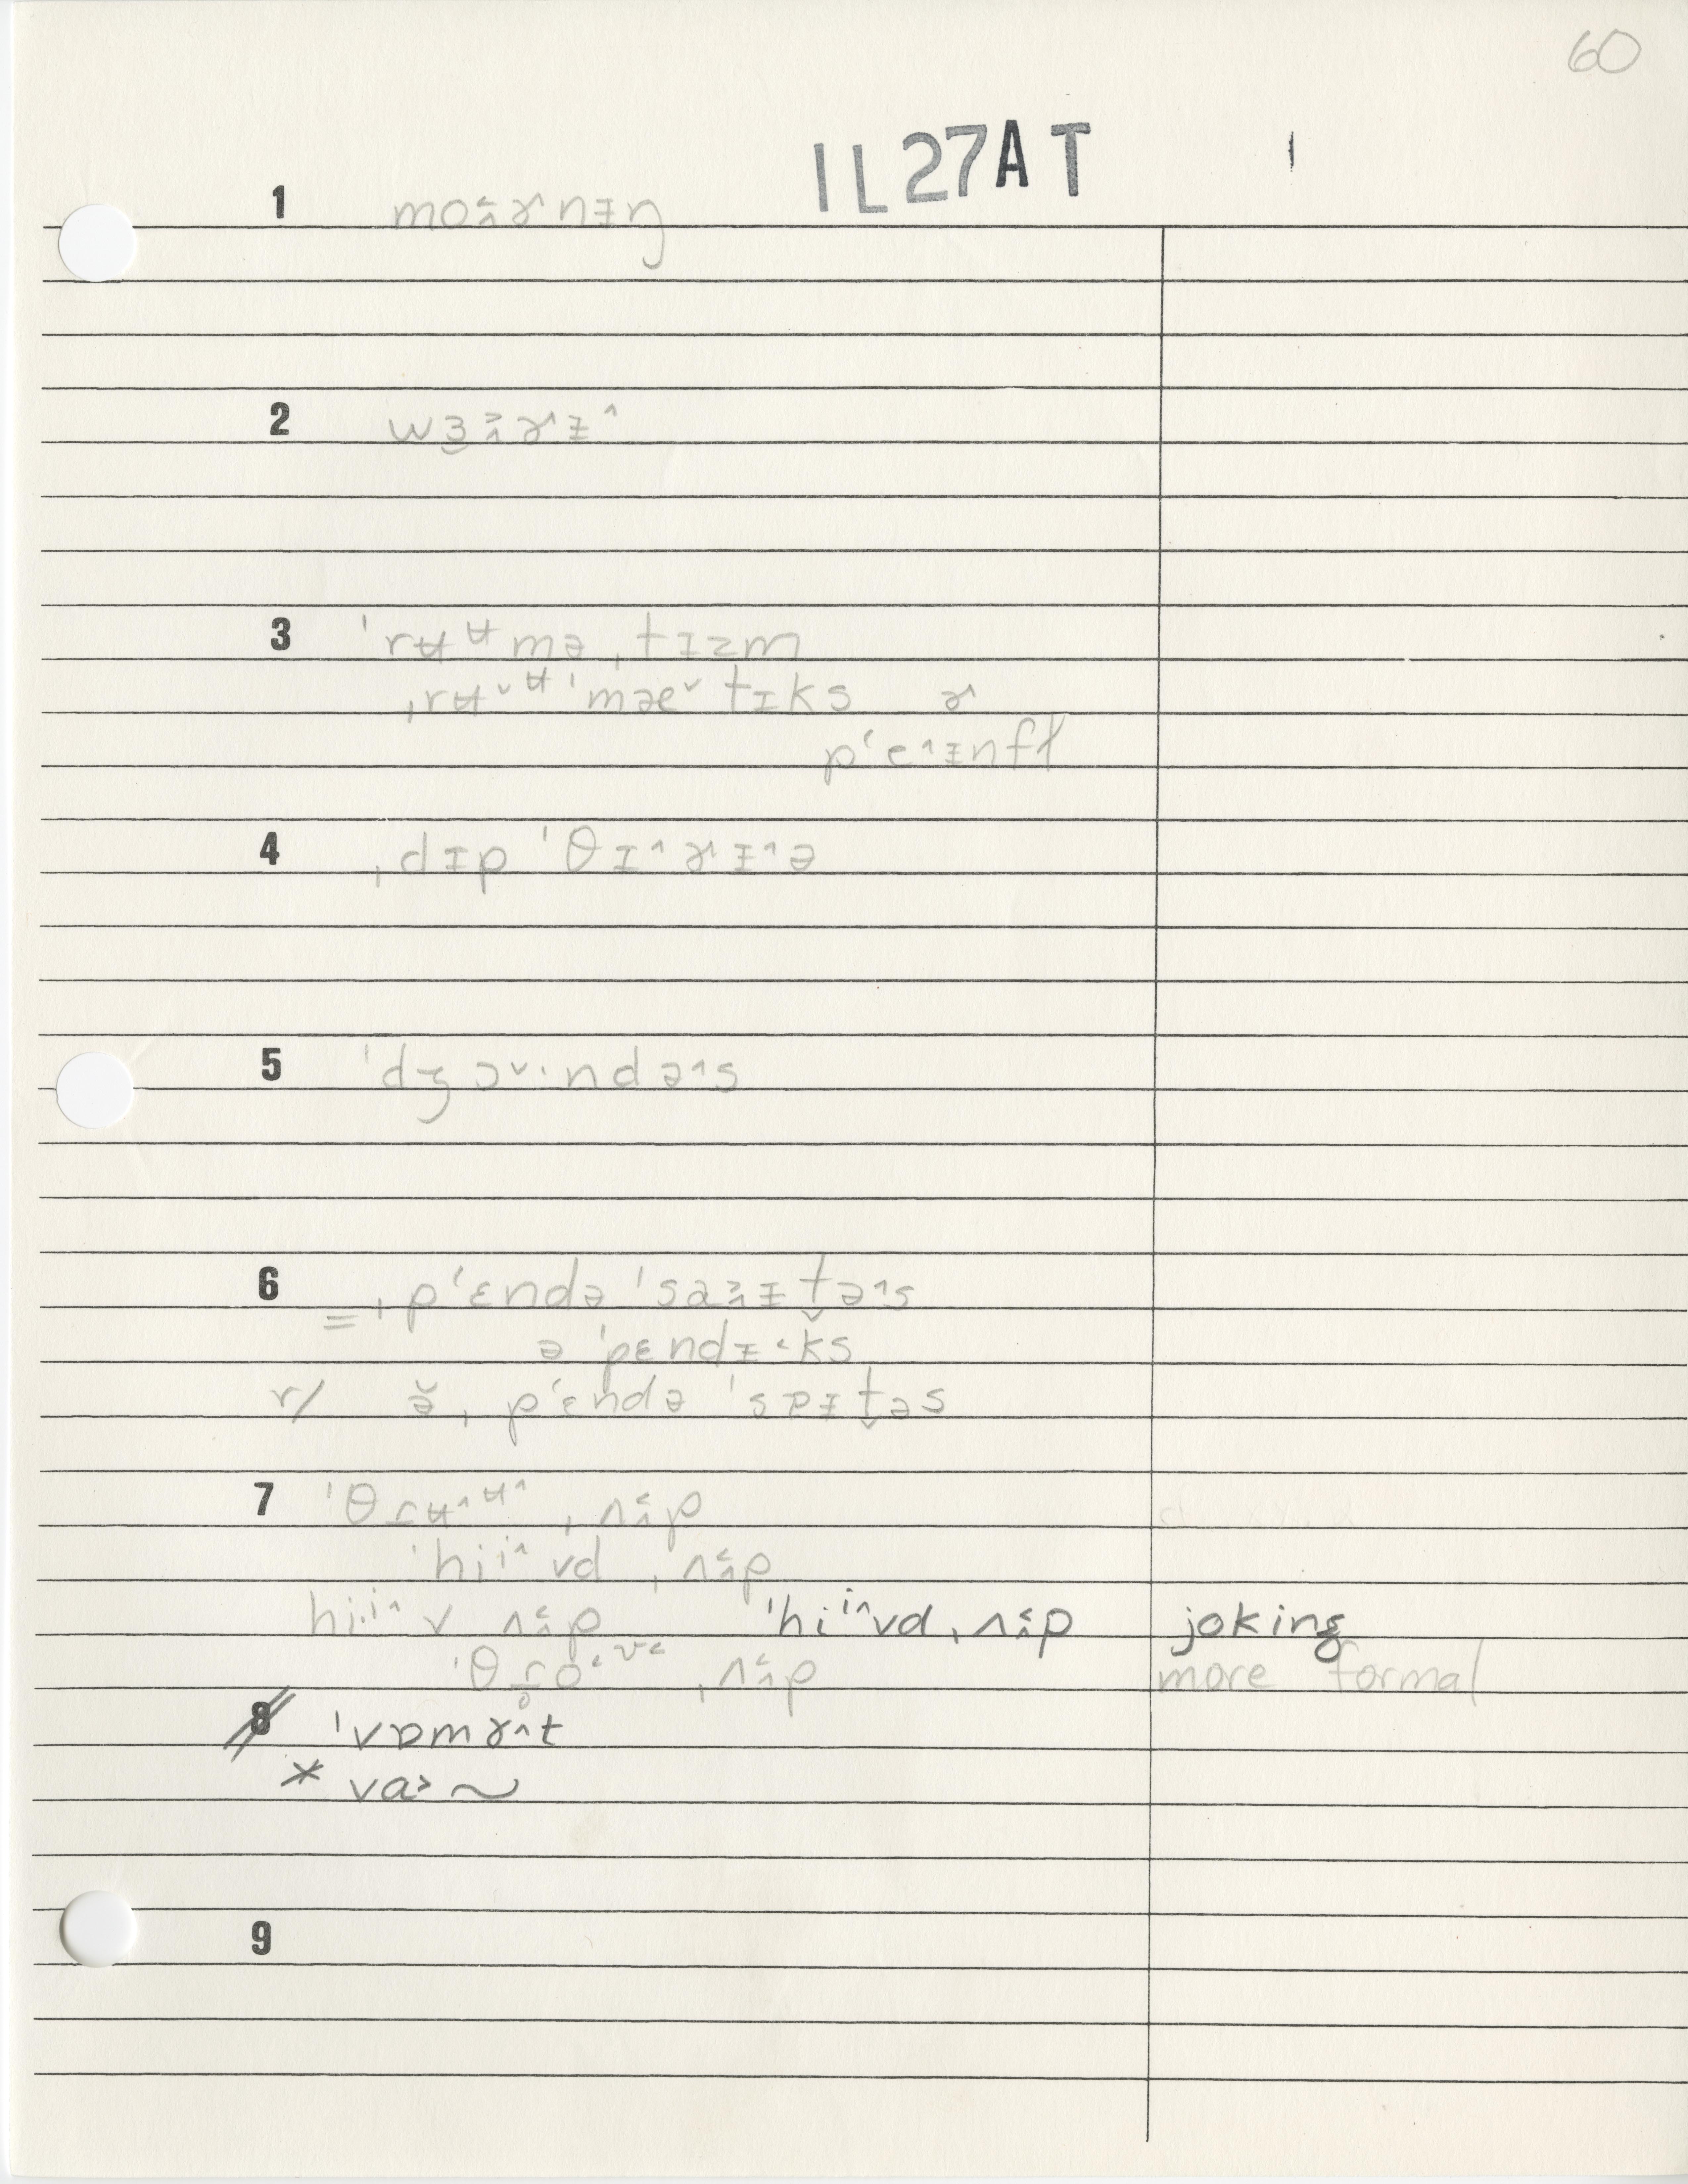 60
IL27AT 1
1 moɚnɪŋ
2 wɜɚɪ^
3 ˈrʉʉmə,tɪzm
ˌrʉˇʉˈmæˇtɪks ɚ
p‘e^ɪnfl
4 ˌdɪpˈθɪ^ɚɪ^ə
5 ˈdʒɔˇ·ndə^s
6 =ˌp‘ɛndəˈsaɪt̬ə^s
əˈpɛndɪ‹ks
r/ ə̆ˌp‘ɛndəˈsɒɪt̬əs
7 ˈθɾʉ^ʉ^ˌʌp
ˈhiⁱ^vdˌʌp
hi·ⁱ^v ʌp ˈhiⁱ^vdˌʌp joking
ˈθɾ̥o‹ʊ‹ˌʌp more formal
8 ˈvɒmɚ^t
* va> ~
9